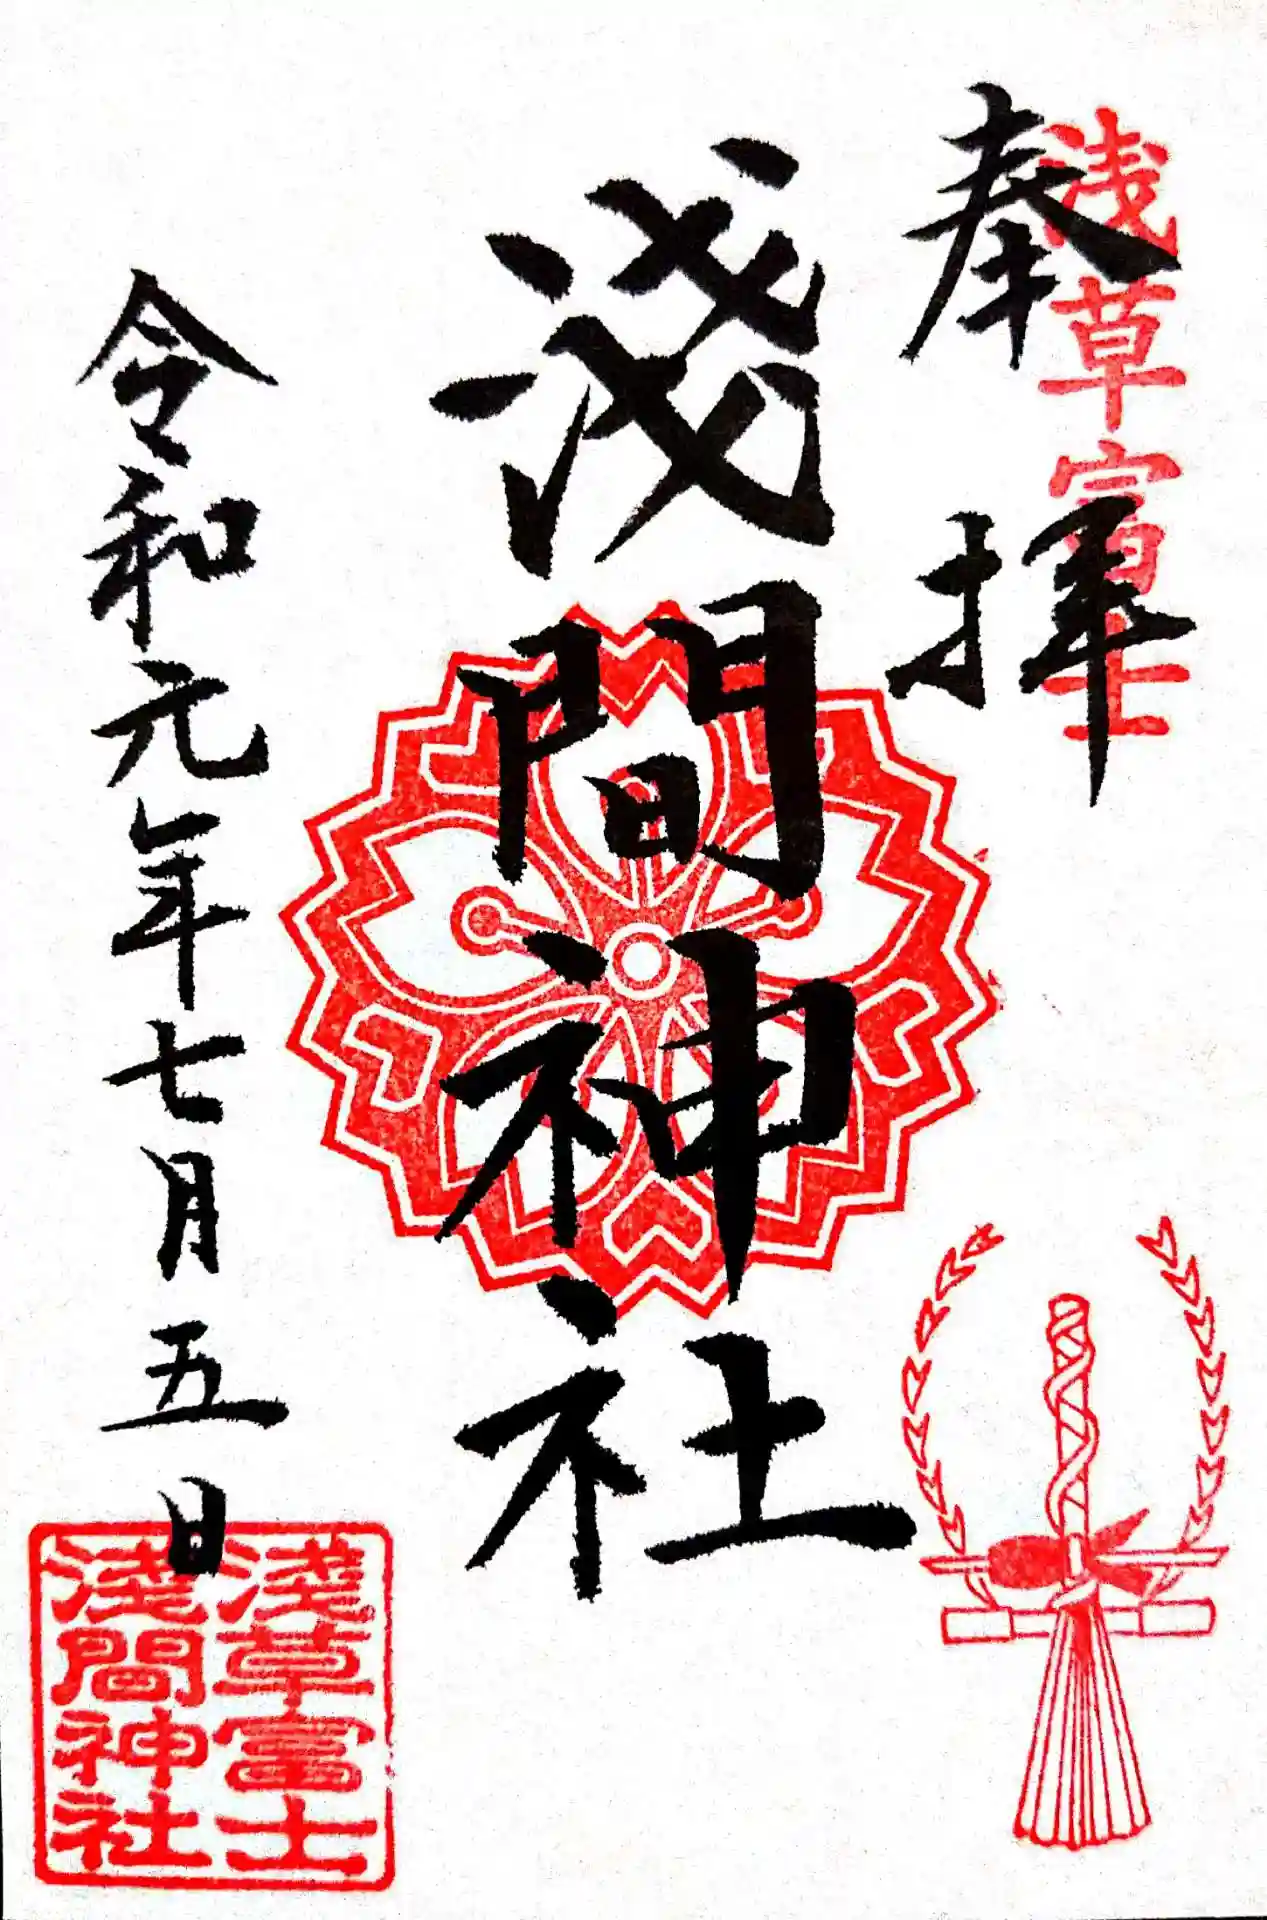 浅草富士
奉拝
淺間神社
令和元年七月五日
淺草富士
淺間神社